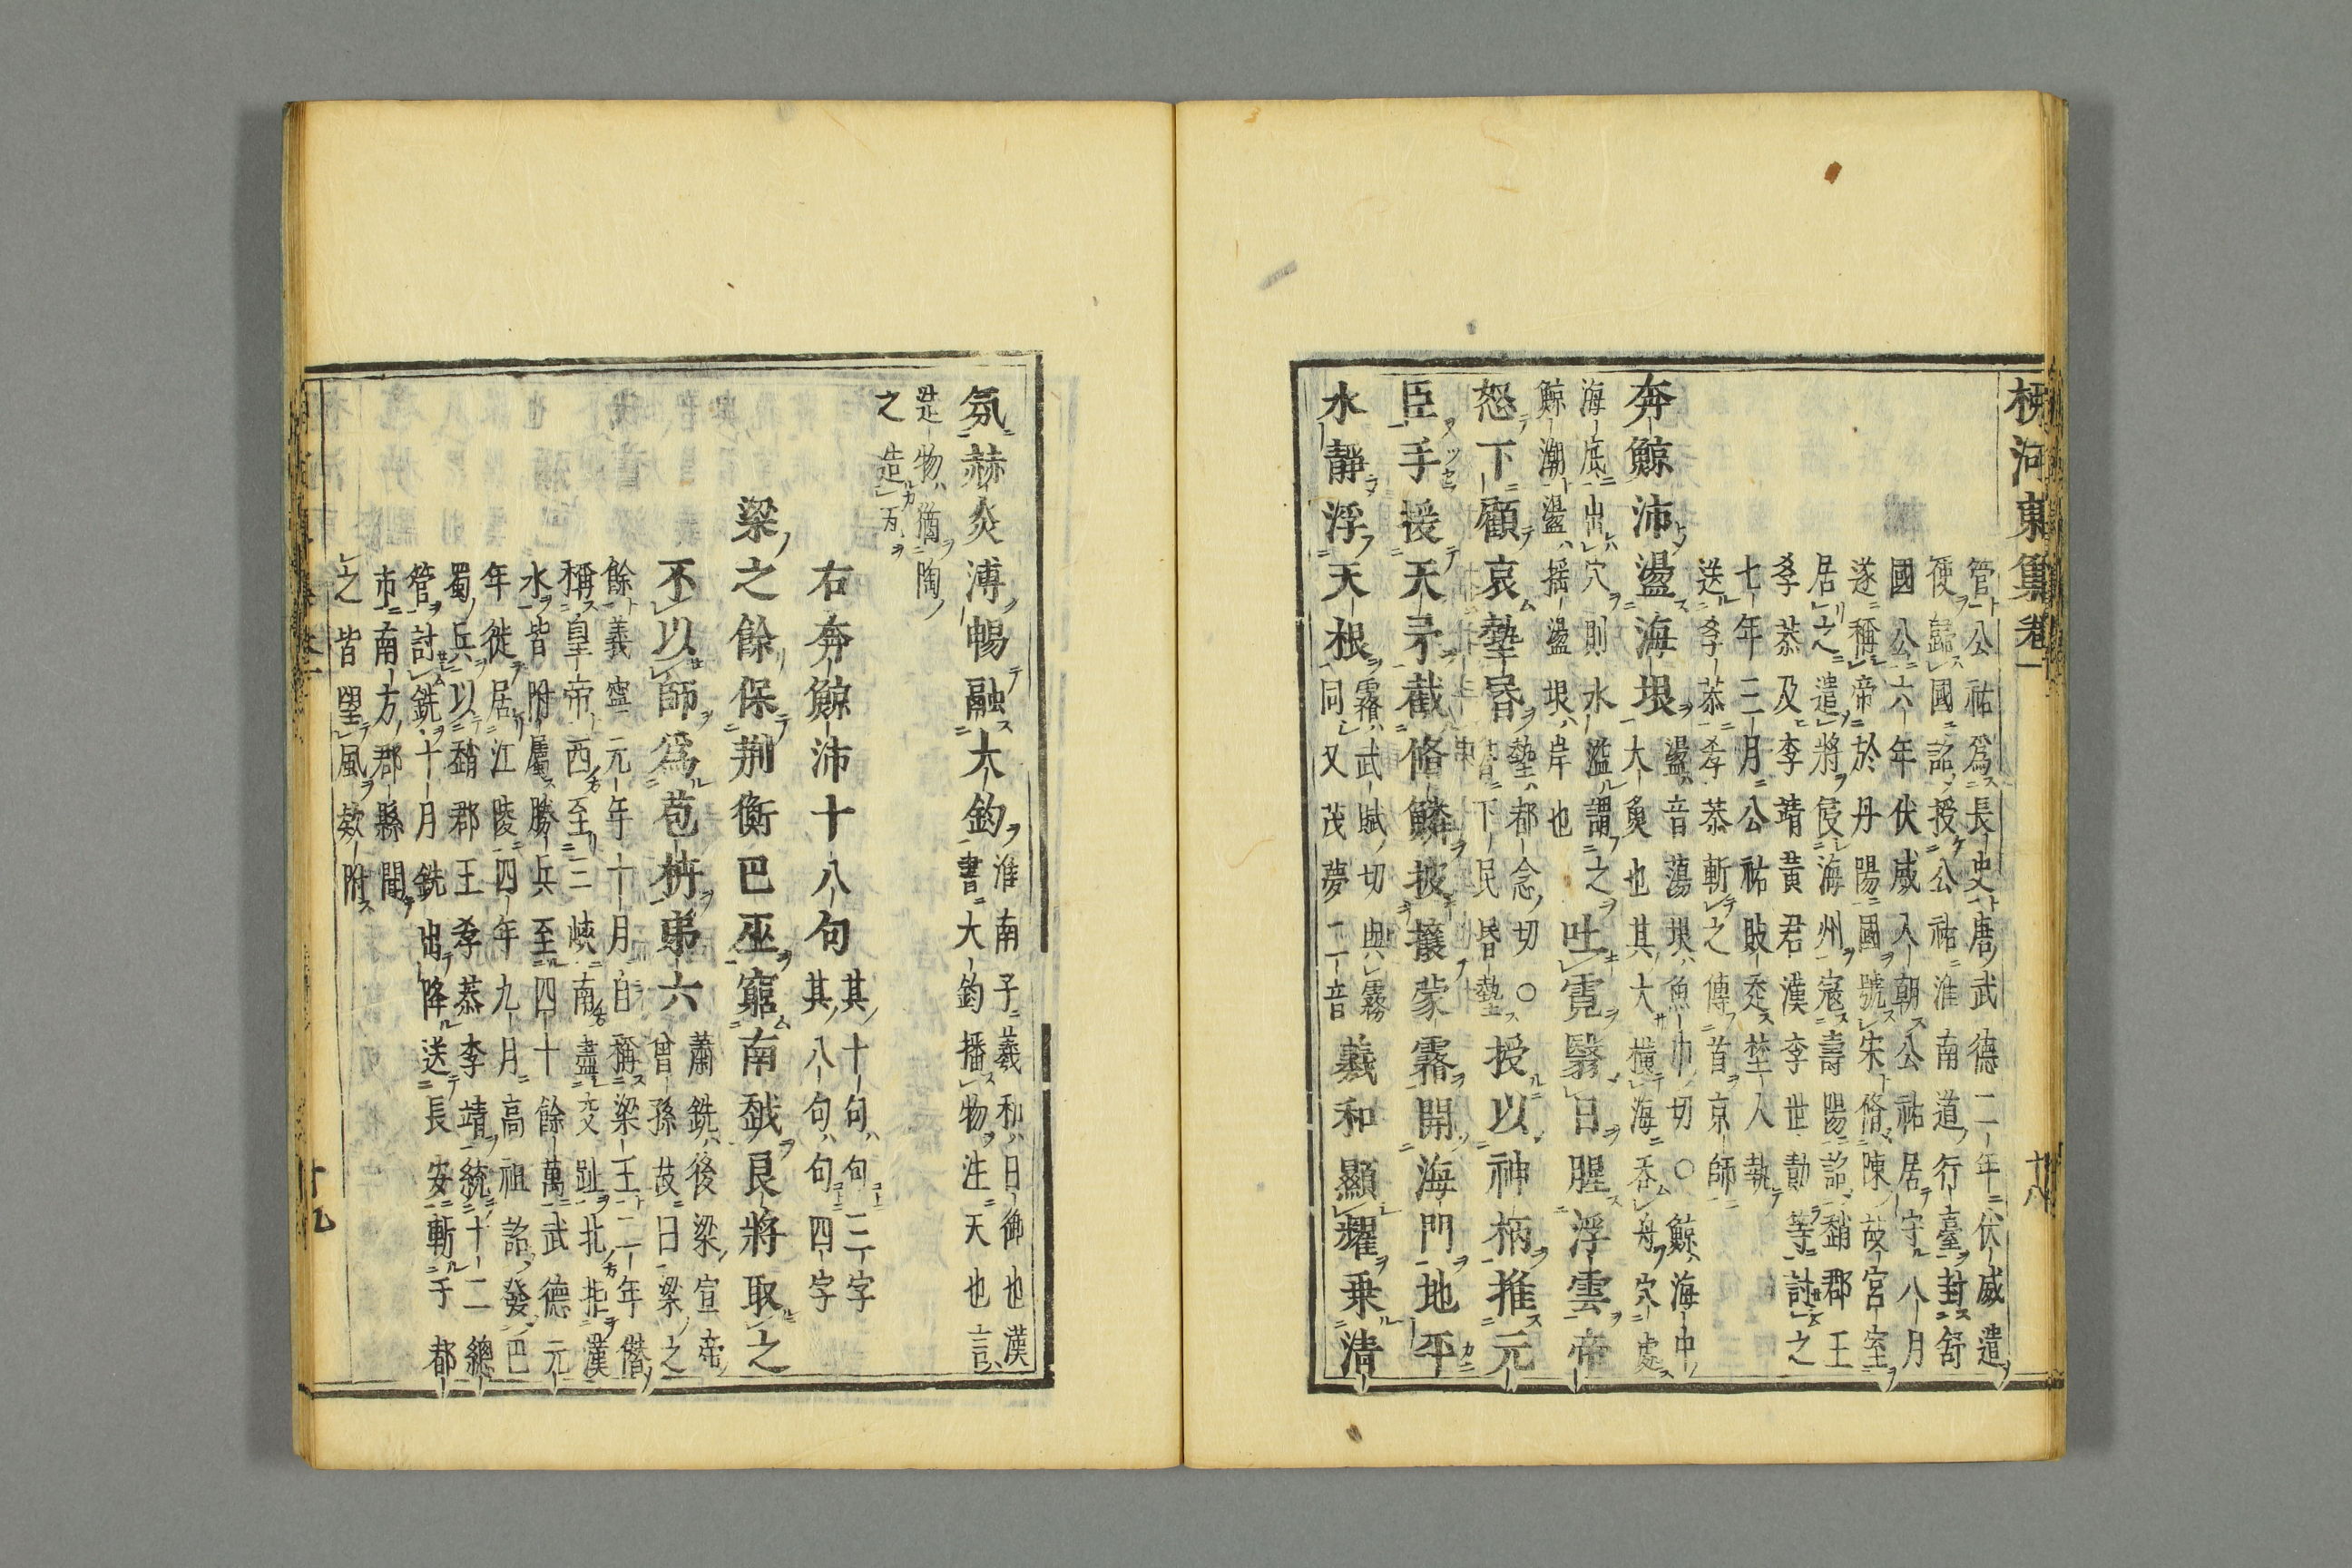 柳河東集卷一
十八
管公祏爲長史唐武德二年伏威遣
使歸國詔授公祏淮南道行臺封舒
國公六年伏威入朝公祏居守八月
遂稱帝於丹陽國號宋脩陳故宮室
居之遣將侵海州寇壽陽詔趙郡王
孝恭及李靖黃君漢李世勣等討之
七年三月公祏敗走埜人執
送孝恭孝恭斬之傳首京師
奔鯨沛盪海垠
盪音蕩垠魚巾切○鯨海中
大魚也其大橫海吞舟穴處
海底出穴則水溢謂之
鯨潮盪搖盪垠岸也
吐霓翳日腥浮雲帝
怒下顧哀墊昏
墊都念切○
下民昏墊
授以神柄推元
臣手援天矛截脩鱗披攘蒙霿開海門地平
水靜浮天根
霿武賦切與霧
同又茂夢二音
羲和顯耀乘清
氛赫炎溥暢融大鈞
淮南子羲和日御也漢
書大鈞播物注天也言
造物猶陶
之造瓦
右奔鯨沛十八句
其十句句三字
其八句句四字
梁之餘保荆衡巴巫窮南越良將取之
不以師爲苞枿弟六
蕭銑後梁宣帝
曾孫故曰梁之
餘義寧元年十月自稱梁王二年僭
稱皇帝西至三峽南盡交趾北拒漢
水皆附屬勝兵至四十餘萬武德元
年徙居江陵四年九月高祖詔發巴
蜀兵以趙郡王孝恭李靖統十二總
管討銑十月銑出降送長安斬于都
市南方郡縣聞
之皆望風欵附
十九